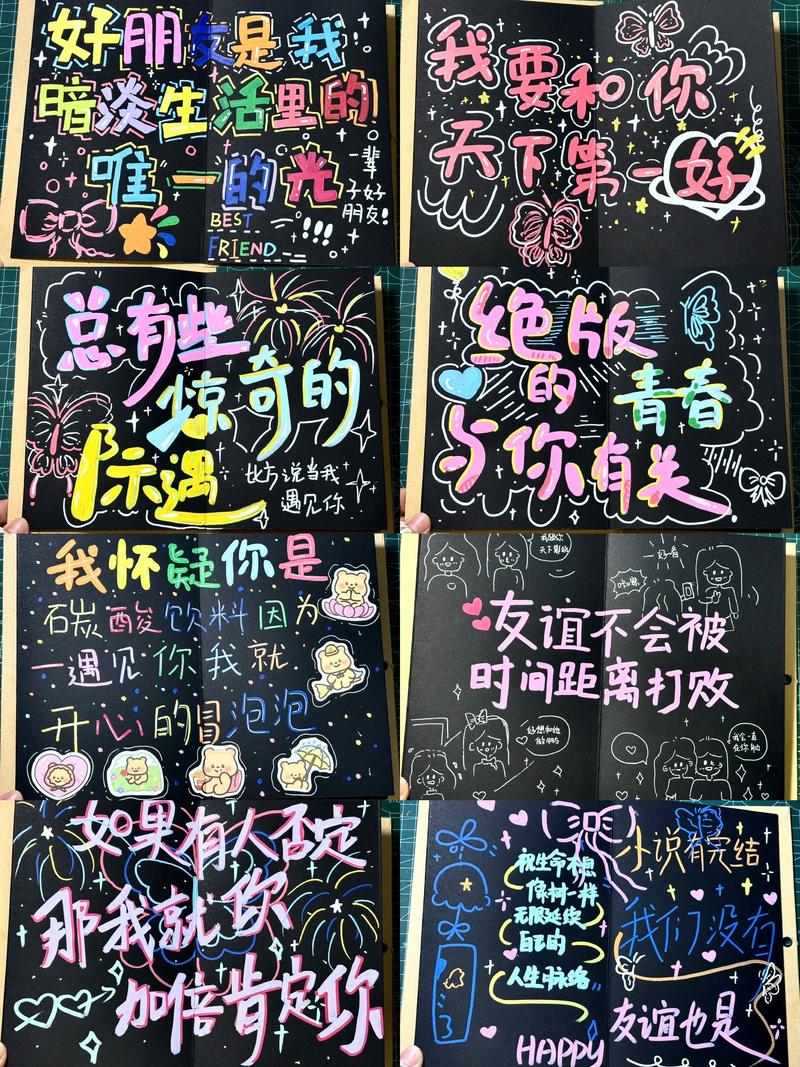 好朋友是我
暗淡生活里的
唯一的光
一辈
子好
朋友!
BEST
FRIEND
!!!
我要和你
天下第一好
总有些
惊奇的
际遇
比方说当我
遇见你
绝版
的青春
与你有关
我怀疑你是
碳酸饮料因为
一遇见你我就
开心的冒泡泡
天下第
一好看
友谊不会被
时间距离打败
好想和她
做朋友
我会一直
在你身边
如果有人否定
那我就你
加倍肯定你
祝生命想
像树一样
无限延续
自己的
人生脉络
HAPPY
小说有完结
我们没有
友谊也是